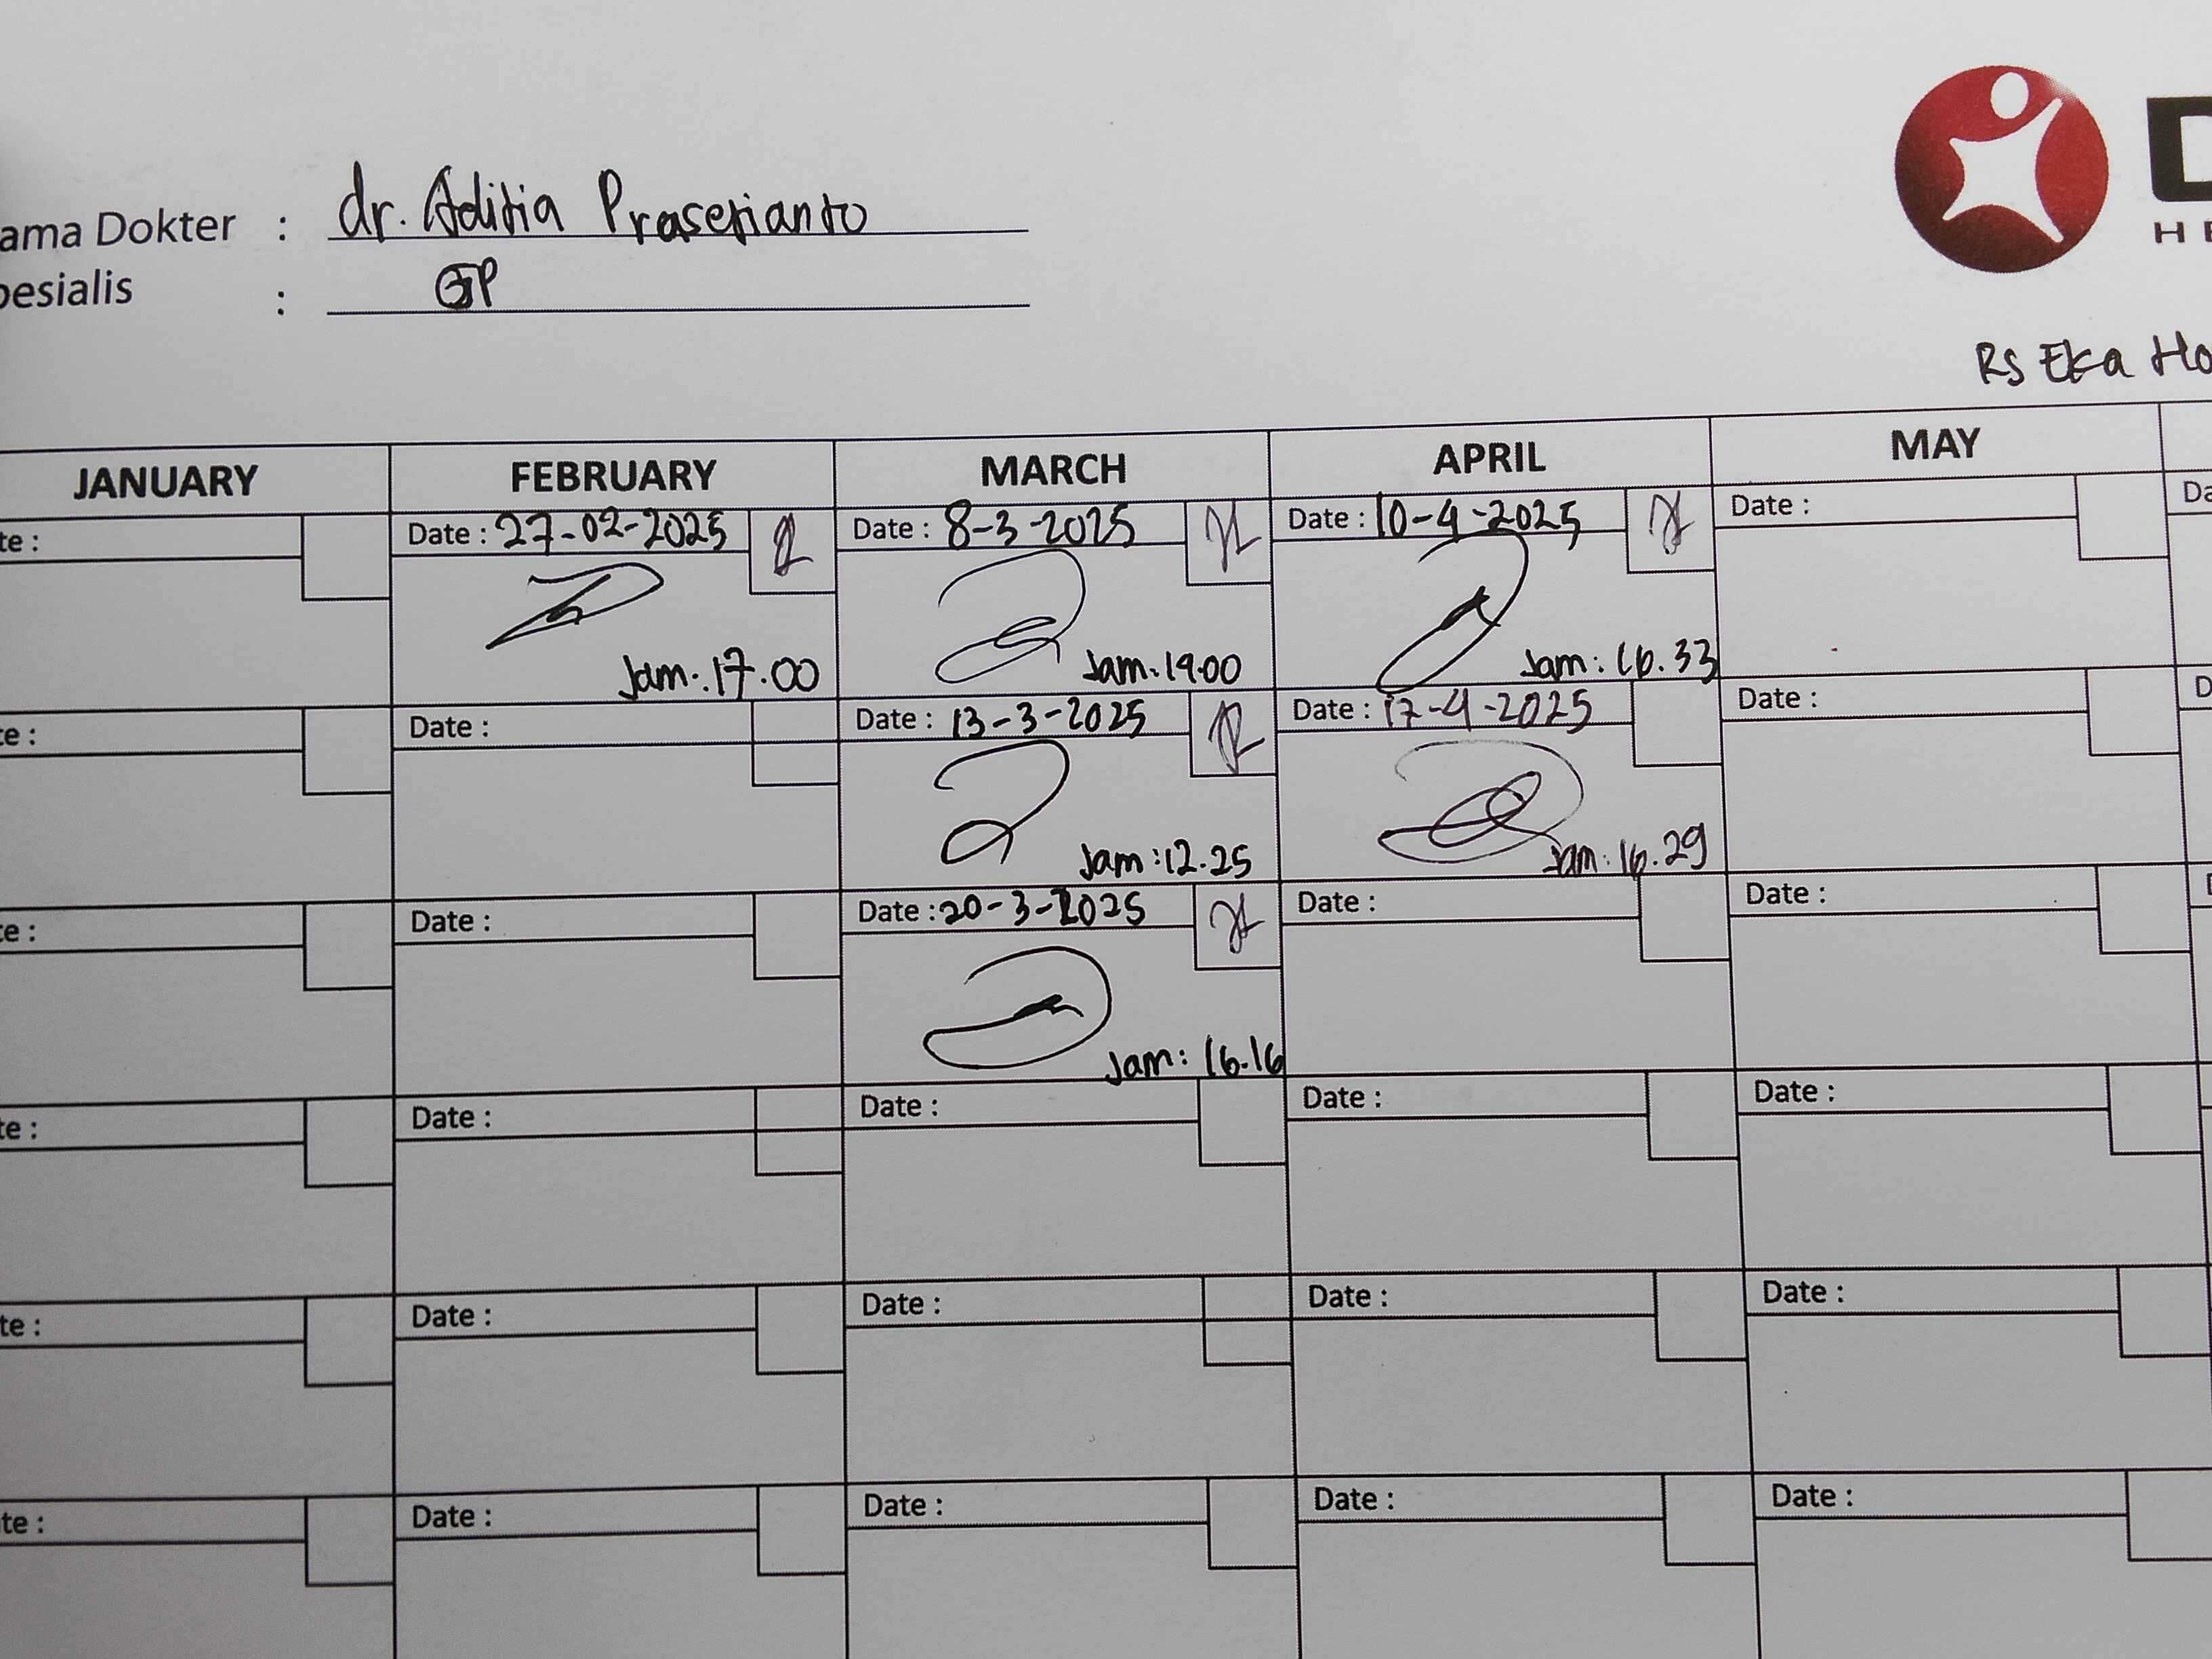 ama Dokter : dr. Aditia Prasetianto
pesialis : GP
D
HE
RS Eka Ho
JANUARY FEBRUARY MARCH APRIL MAY
te : Date : 27-02-2025 Date : 8-3-2025 Date : 10-4-2025 Date : Da
Jam: 17.00 Jam: 19.00 Jam: 16.33
te : Date : Date : 13-3-2025 Date : 17-4-2025 Date : D
Jam: 12.25 Jam: 16.29
te : Date : Date : 20-3-2025 Date : Date :
Jam: 16.16
te : Date : Date : Date : Date :
te : Date : Date : Date : Date :
te : Date : Date : Date : Date :